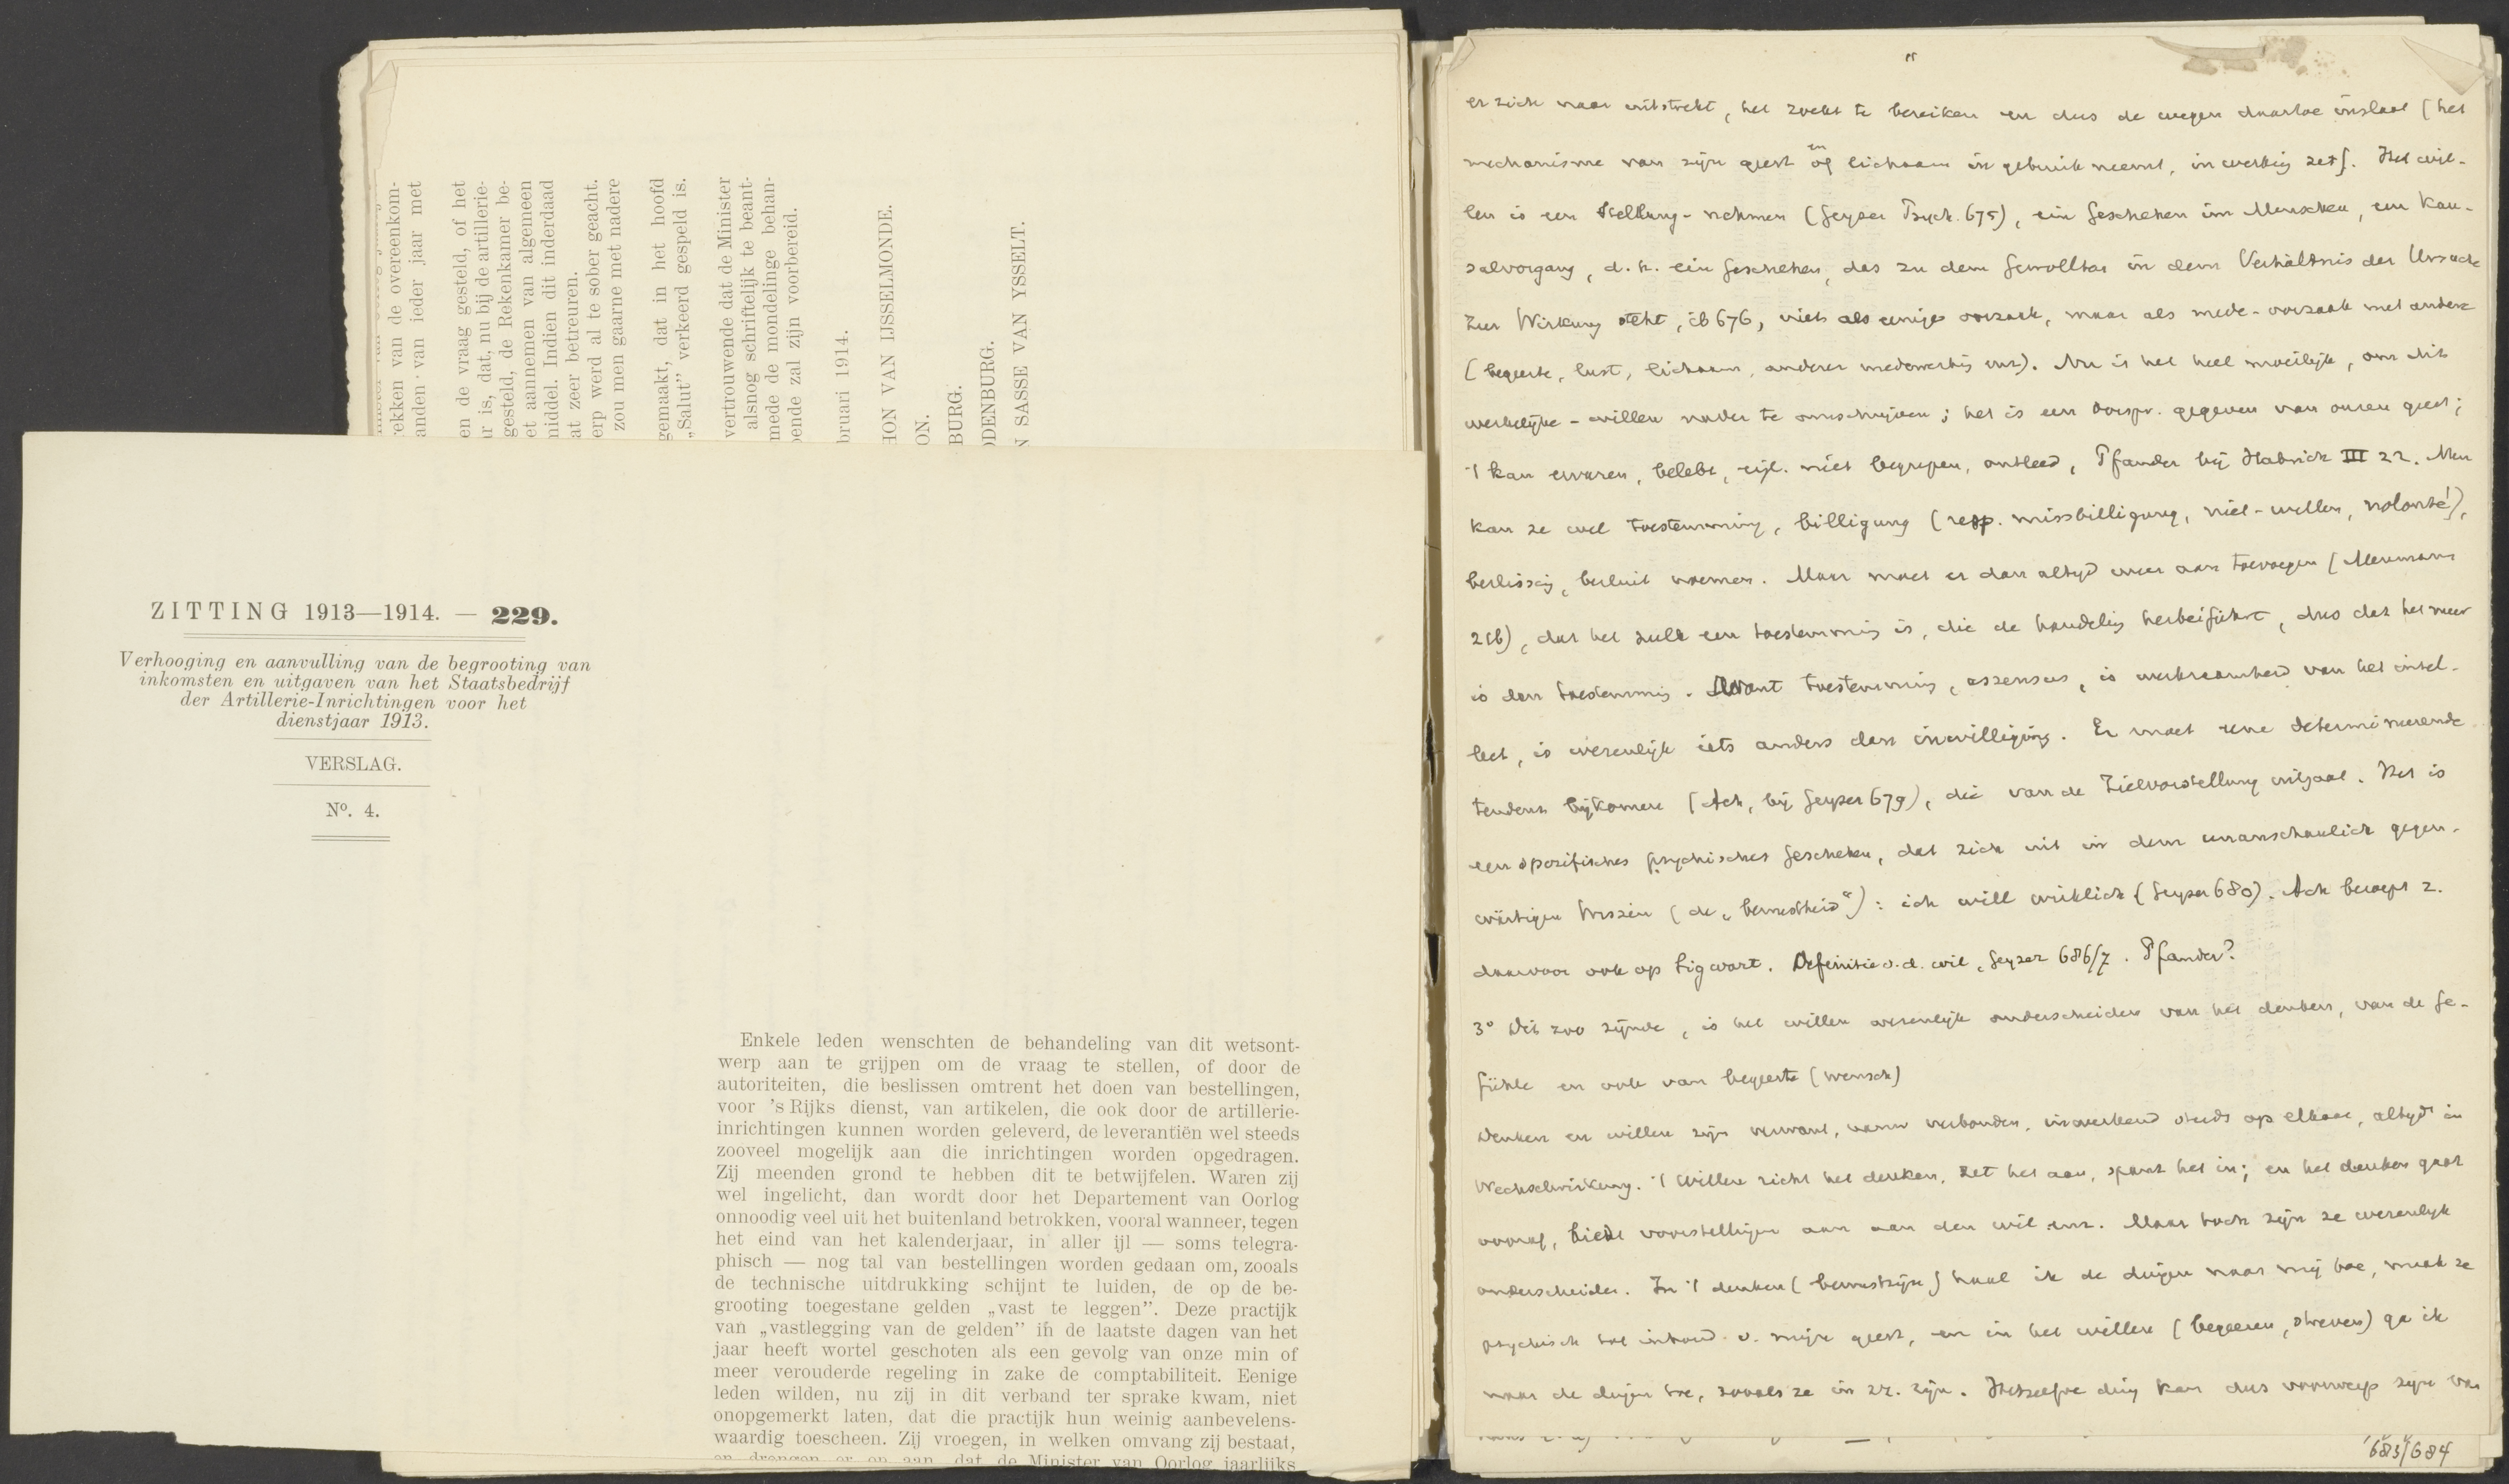 ZITTING 1913—1914. — 229.
Verhooging en aanvulling van de begrooting van
inkomsten en uitgaven van het Staatsbedrijf
der Artillerie-Inrichtingen voor het
dienstjaar 1913.
VERSLAG.
Nº. 4.
Enkele leden wenschten de behandeling van dit wetsont-
werp aan te grijpen om de vraag te stellen, of door de
autoriteiten, die beslissen omtrent het doen van bestellingen,
voor 's Rijks dienst, van artikelen, die ook door de artillerie-
inrichtingen kunnen worden geleverd, de leverantiën wel steeds
zooveel mogelijk aan die inrichtingen worden opgedragen.
Zij meenden grond te hebben dit te betwijfelen. Waren zij
wel ingelicht, dan wordt door het Departement van Oorlog
onnoodig veel uit het buitenland betrokken, vooral wanneer, tegen
het eind van het kalenderjaar, in aller ijl — soms telegra-
phisch — nog tal van bestellingen worden gedaan om, zooals
de technische uitdrukking schijnt te luiden, de op de be-
grooting toegestane gelden „vast te leggen”. Deze practijk
van „vastlegging van de gelden” in de laatste dagen van het
jaar heeft wortel geschoten als een gevolg van onze min of
meer verouderde regeling in zake de comptabiliteit. Eenige
leden wilden, nu zij in dit verband ter sprake kwam, niet
onopgemerkt laten, dat die practijk hun weinig aanbevelens-
waardig toescheen. Zij vroegen, in welken omvang zij bestaat,
en drongen er op aan, dat de Minister van Oorlog jaarlijks
rekken van de overeenkom-
anden van ieder jaar met
en de vraag gesteld, of het
ar is, dat, nu bij de artillerie-
gesteld, de Rekenkamer be-
et aannemen van algemeen
middel. Indien dit inderdaad
at zeer betreuren.
erp werd al te sober geacht.
zou men gaarne met nadere
gemaakt, dat in het hoofd
„Salut” verkeerd gespeld is.
vertrouwende dat de Minister
alsnog schriftelijk te beant-
mede de mondelinge behan-
ende zal zijn voorbereid.
bruari 1914.
HON VAN IJSSELMONDE.
ON.
BURG.
DENBURG.
N SASSE VAN YSSELT.
er zich naar uitstrekt, het zoekt te bereiken en dus de wegen daartoe inslaat (het
mechanisme van zijn geest en of lichaam in gebruik neemt, in werking zet). Het wil-
len is een Stellung-nehmen (Geyser Psych. 675), ein Geschehen im Menschen, ein Kau-
salvorgang, d.h. ein Geschehen, das zu dem Gewollten in dem Verhältnis der Ursache
zur Wirkung steht, ib 676, niet als eenige oorzaak, maar als mede-oorzaak met andere
(begeerte, lust, lichaam, anderer medewerking enz). Nu is het heel moeilijk, om dit
werkelijke-willen nader te omschrijven; het is een oorspr. gegeven van onzen geest;
't kan ervaren, beleefd, eigl. niet begrepen, ontleed, Pfänder bij Habrich III 22. Men
kan ze wel toestemming, billigung (resp. missbilligung, niet-willen, nolonté),
beslissing, besluit noemen. Maar moet er dan altijd weer aan toevoegen (Meumann
216), dat het zulk een toestemming is, die de handeling herbeiführt, dus dat het meer
is dan toestemming. Want toestemming, assensus, is werkzaamheid van het intel-
lect, is wezenlijk iets anders dan inwilliging. Er moet eene determineerende
tendenz bijkomen (Ach, bij Geyser 679), die van de Zielvorstellung uitgaat. Het is
een spezifisches psychisches Geschehen, dat zich uit in dem unanschaulich gegen-
wärtigen Wissen (de „bewustheid“): ich will wirklich (Geyser 680). Ach beroept z.
daarvoor ook op Sigwart. Definitie v.d. wil, Geyser 686/7. Pfänder?
3º Dit zoo zijnde, is het willen wezenlijk onderscheiden van het denken, van de Ge-
fühle en ook van begeerte (wensch)
Denken en willen zijn verwant, nauw verbonden, inwerkend steeds op elkaar, altijd in
Wechselwirkung. 't Willen richt het denken, zet het aan, spant het in; en het denken gaat
vooraf, biedt voorstellingen aan aan den wil enz. Maar toch zijn ze wezenlijk
onderscheiden. In 't denken (bewustzijn) haal ik de dingen naar mij toe, maak ze
psychisch tot inhoud v. mijn geest, en in het willen (begeeren, streven) ga ik
naar de dingen toe, zooals ze in zz. zijn. Hetzelfde ding kan dus voorwerp zijn van
683/684